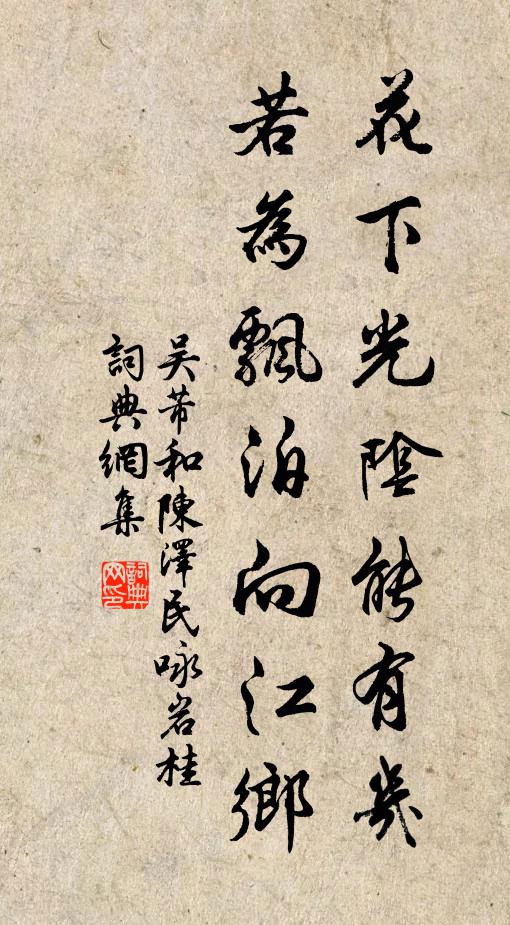 花下光陰能有幾
若為飄泊向江鄉
吴芾和陳澤民咏岩桂
詞典網集
詞典网印